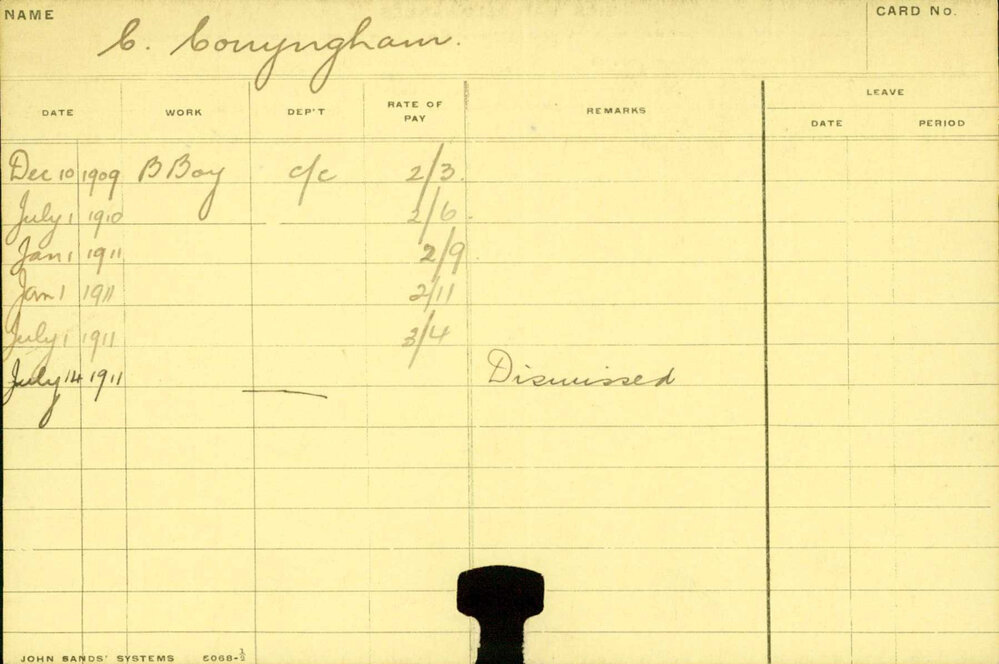 NAME C. Conyngham. CARD NO.
DATE WORK DEP'T RATE OF PAY REMARKS LEAVE
DATE PERIOD
Dec 10 1909 B Boy c/c 2/3.
July 1 1910 2/6.
Jan 1 1911 2/9
Jan 1 1911 2/11
July 1 1911 3/4
July 14 1911 — Dismissed
JOHN SANDS' SYSTEMS 5068-½